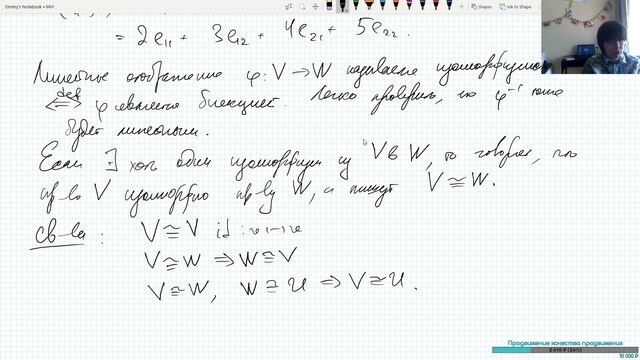 Dmitry's Notebook • MVI
Shapes
Ink to Shape
= 2e₁₁ + 3e₁₂ + 4e₂₁ + 5e₂₂.
Линейное отображение φ: V → W называется изоморфизмом
⇔ def φ является биекцией. Легко проверить, что φ⁻¹ тоже
будет линейным.
Если ∃ хоть один изоморфизм из V в W, то говорят, что
пр-во V изоморфно пр-ву W, и пишут V ≅ W.
Св-ва: V ≅ V id: v ↦ v
V ≅ W ⇒ W ≅ V
V ≅ W, W ≅ U ⇒ V ≅ U.
Продвижение качества продвижения
10 000 ₽